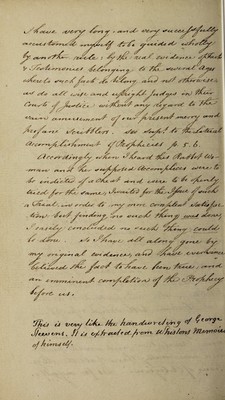 I have very long, and very successfully
accustomed myself to be guided wholly
by another rule; by the real evidence of facts
& Testimonies belonging to the several
wherein such facts do belong, and not otherwise;
as do all wise and upright Judges in their
Courts of Justice without any regard to the
amusement of our present merry and
profane Scribblers. See Supt. to the Literal
Accomplishment of Prophecies p. 5. 6.
Accordingly when I heard this Rabbet Wo-
man and her supposed Accomplices were to
be indicted of a cheat and were to be openly
tried for the same, I waited for the Issue of such
a Trial, in order to my own compleat satisfac-
tion but finding no such thing was done,
I easily concluded no such Thing could
be done. As I have all along gone by
my original evidence, and have ever
believed the fact to have been true, and
an imminent completion of the Prophecy
before us.
This is very like the handwriting of George
Steevens. It is extracted from Whistons Memoirs
of himself.